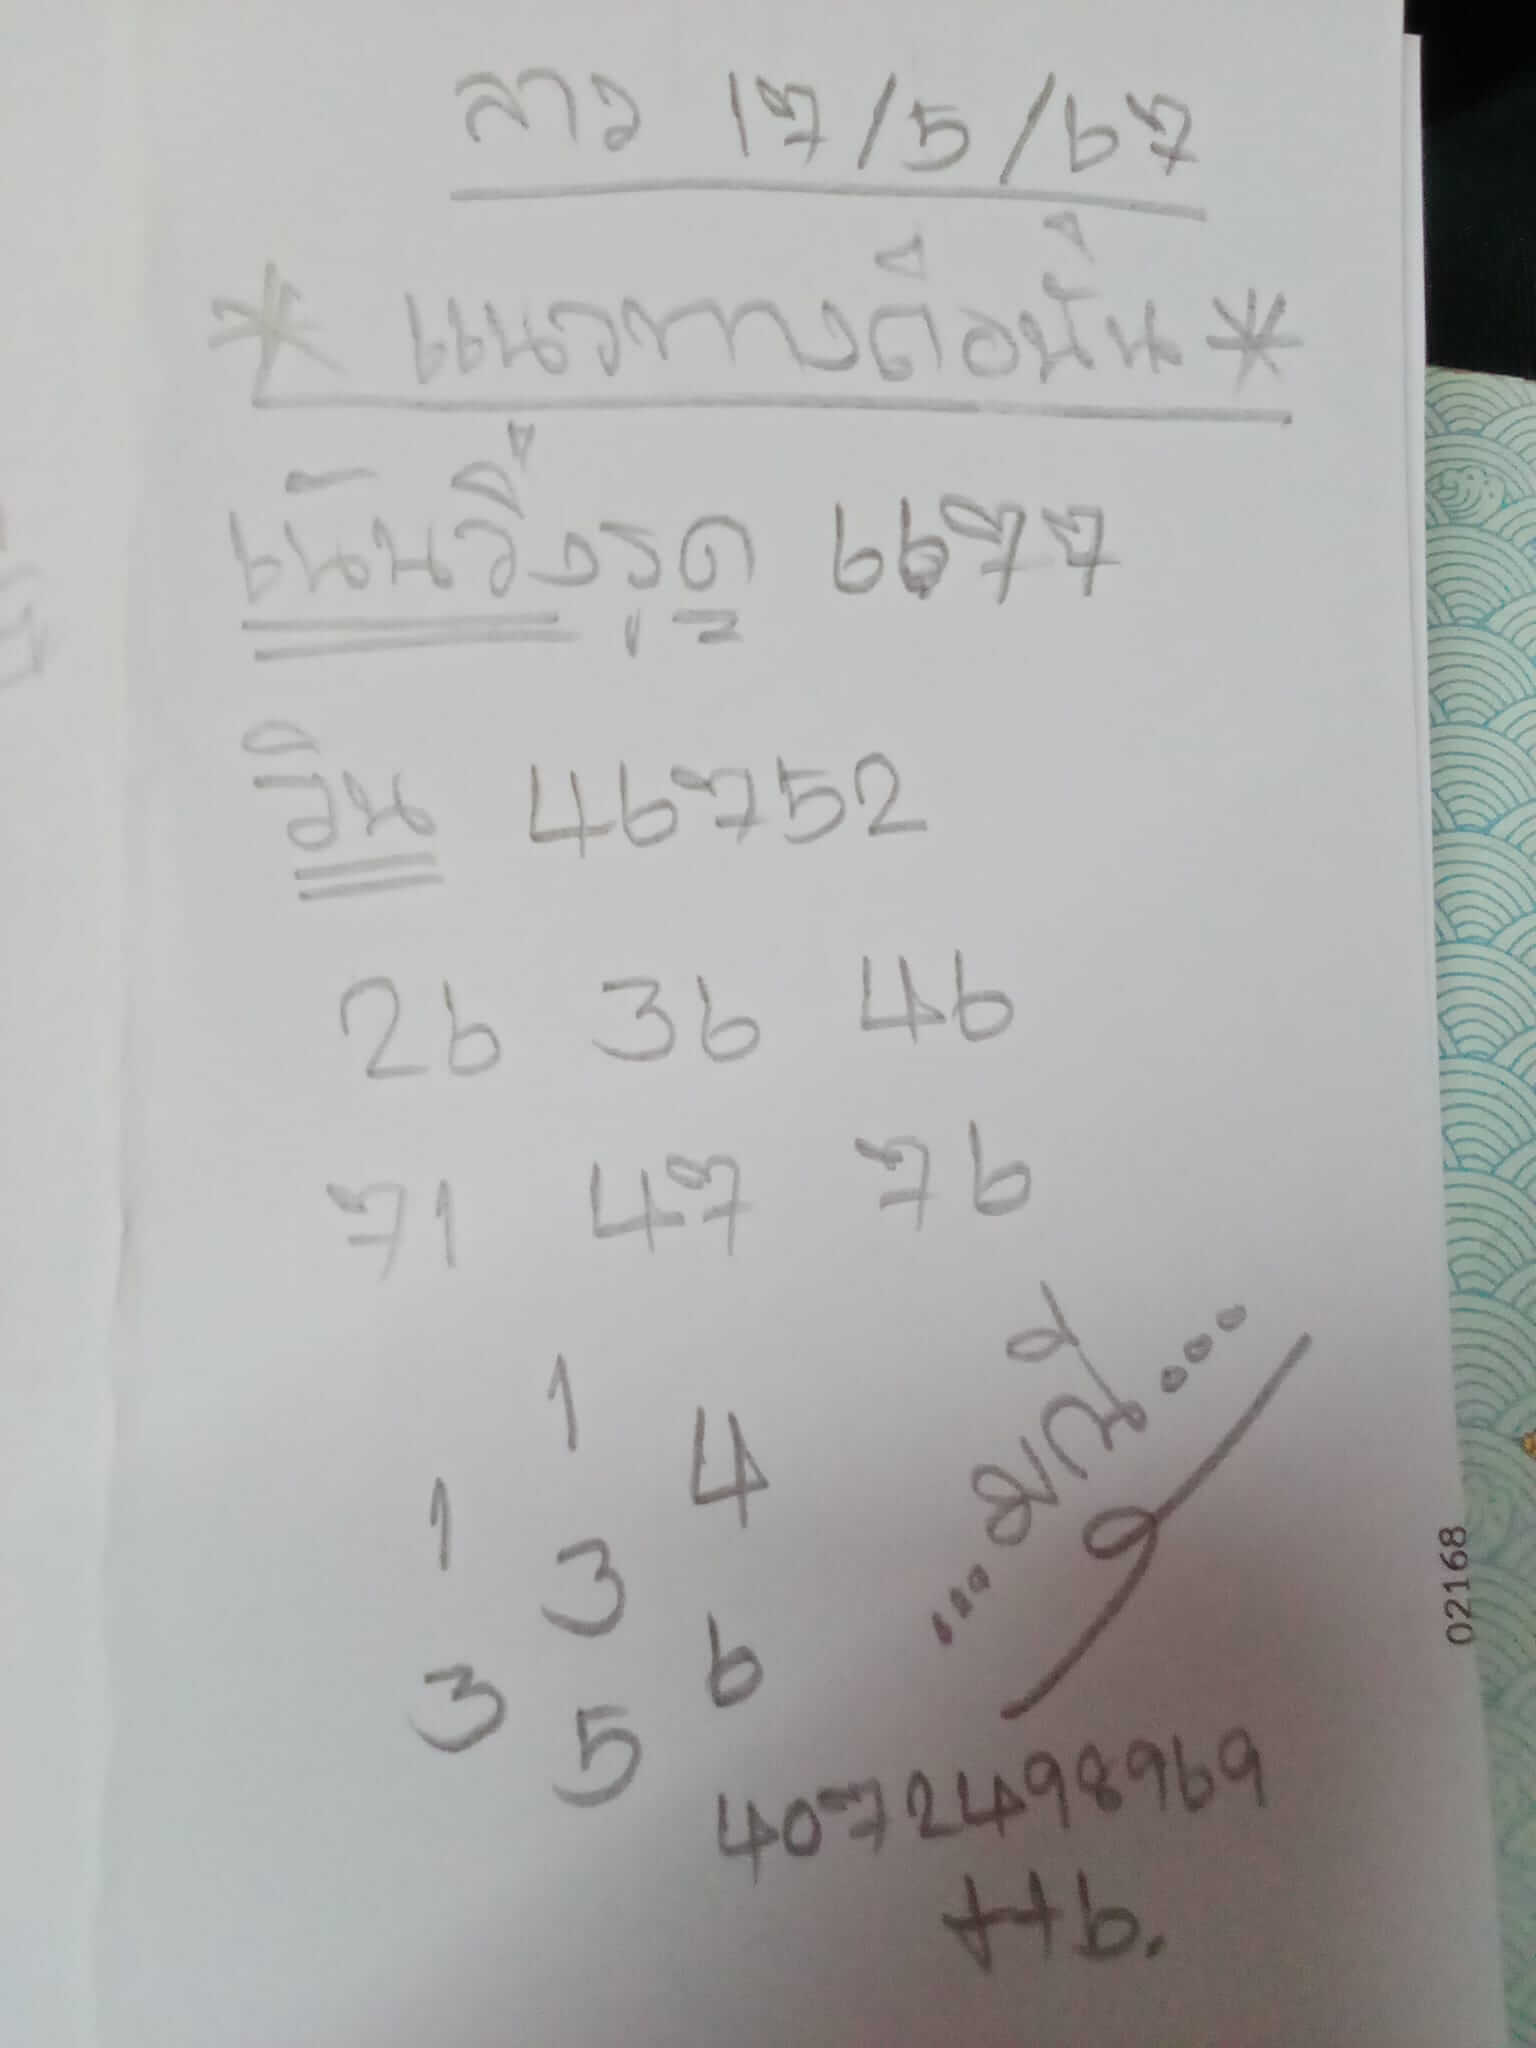 ลาว 17/5/67
* แนวทางคือนั้น *
เน้นวิ่งรูด 6677
วิน 46752
26 36 46
71 47 76
1
4
1
3
6
3
5
...มณี...
4072498969
ttb.
02168